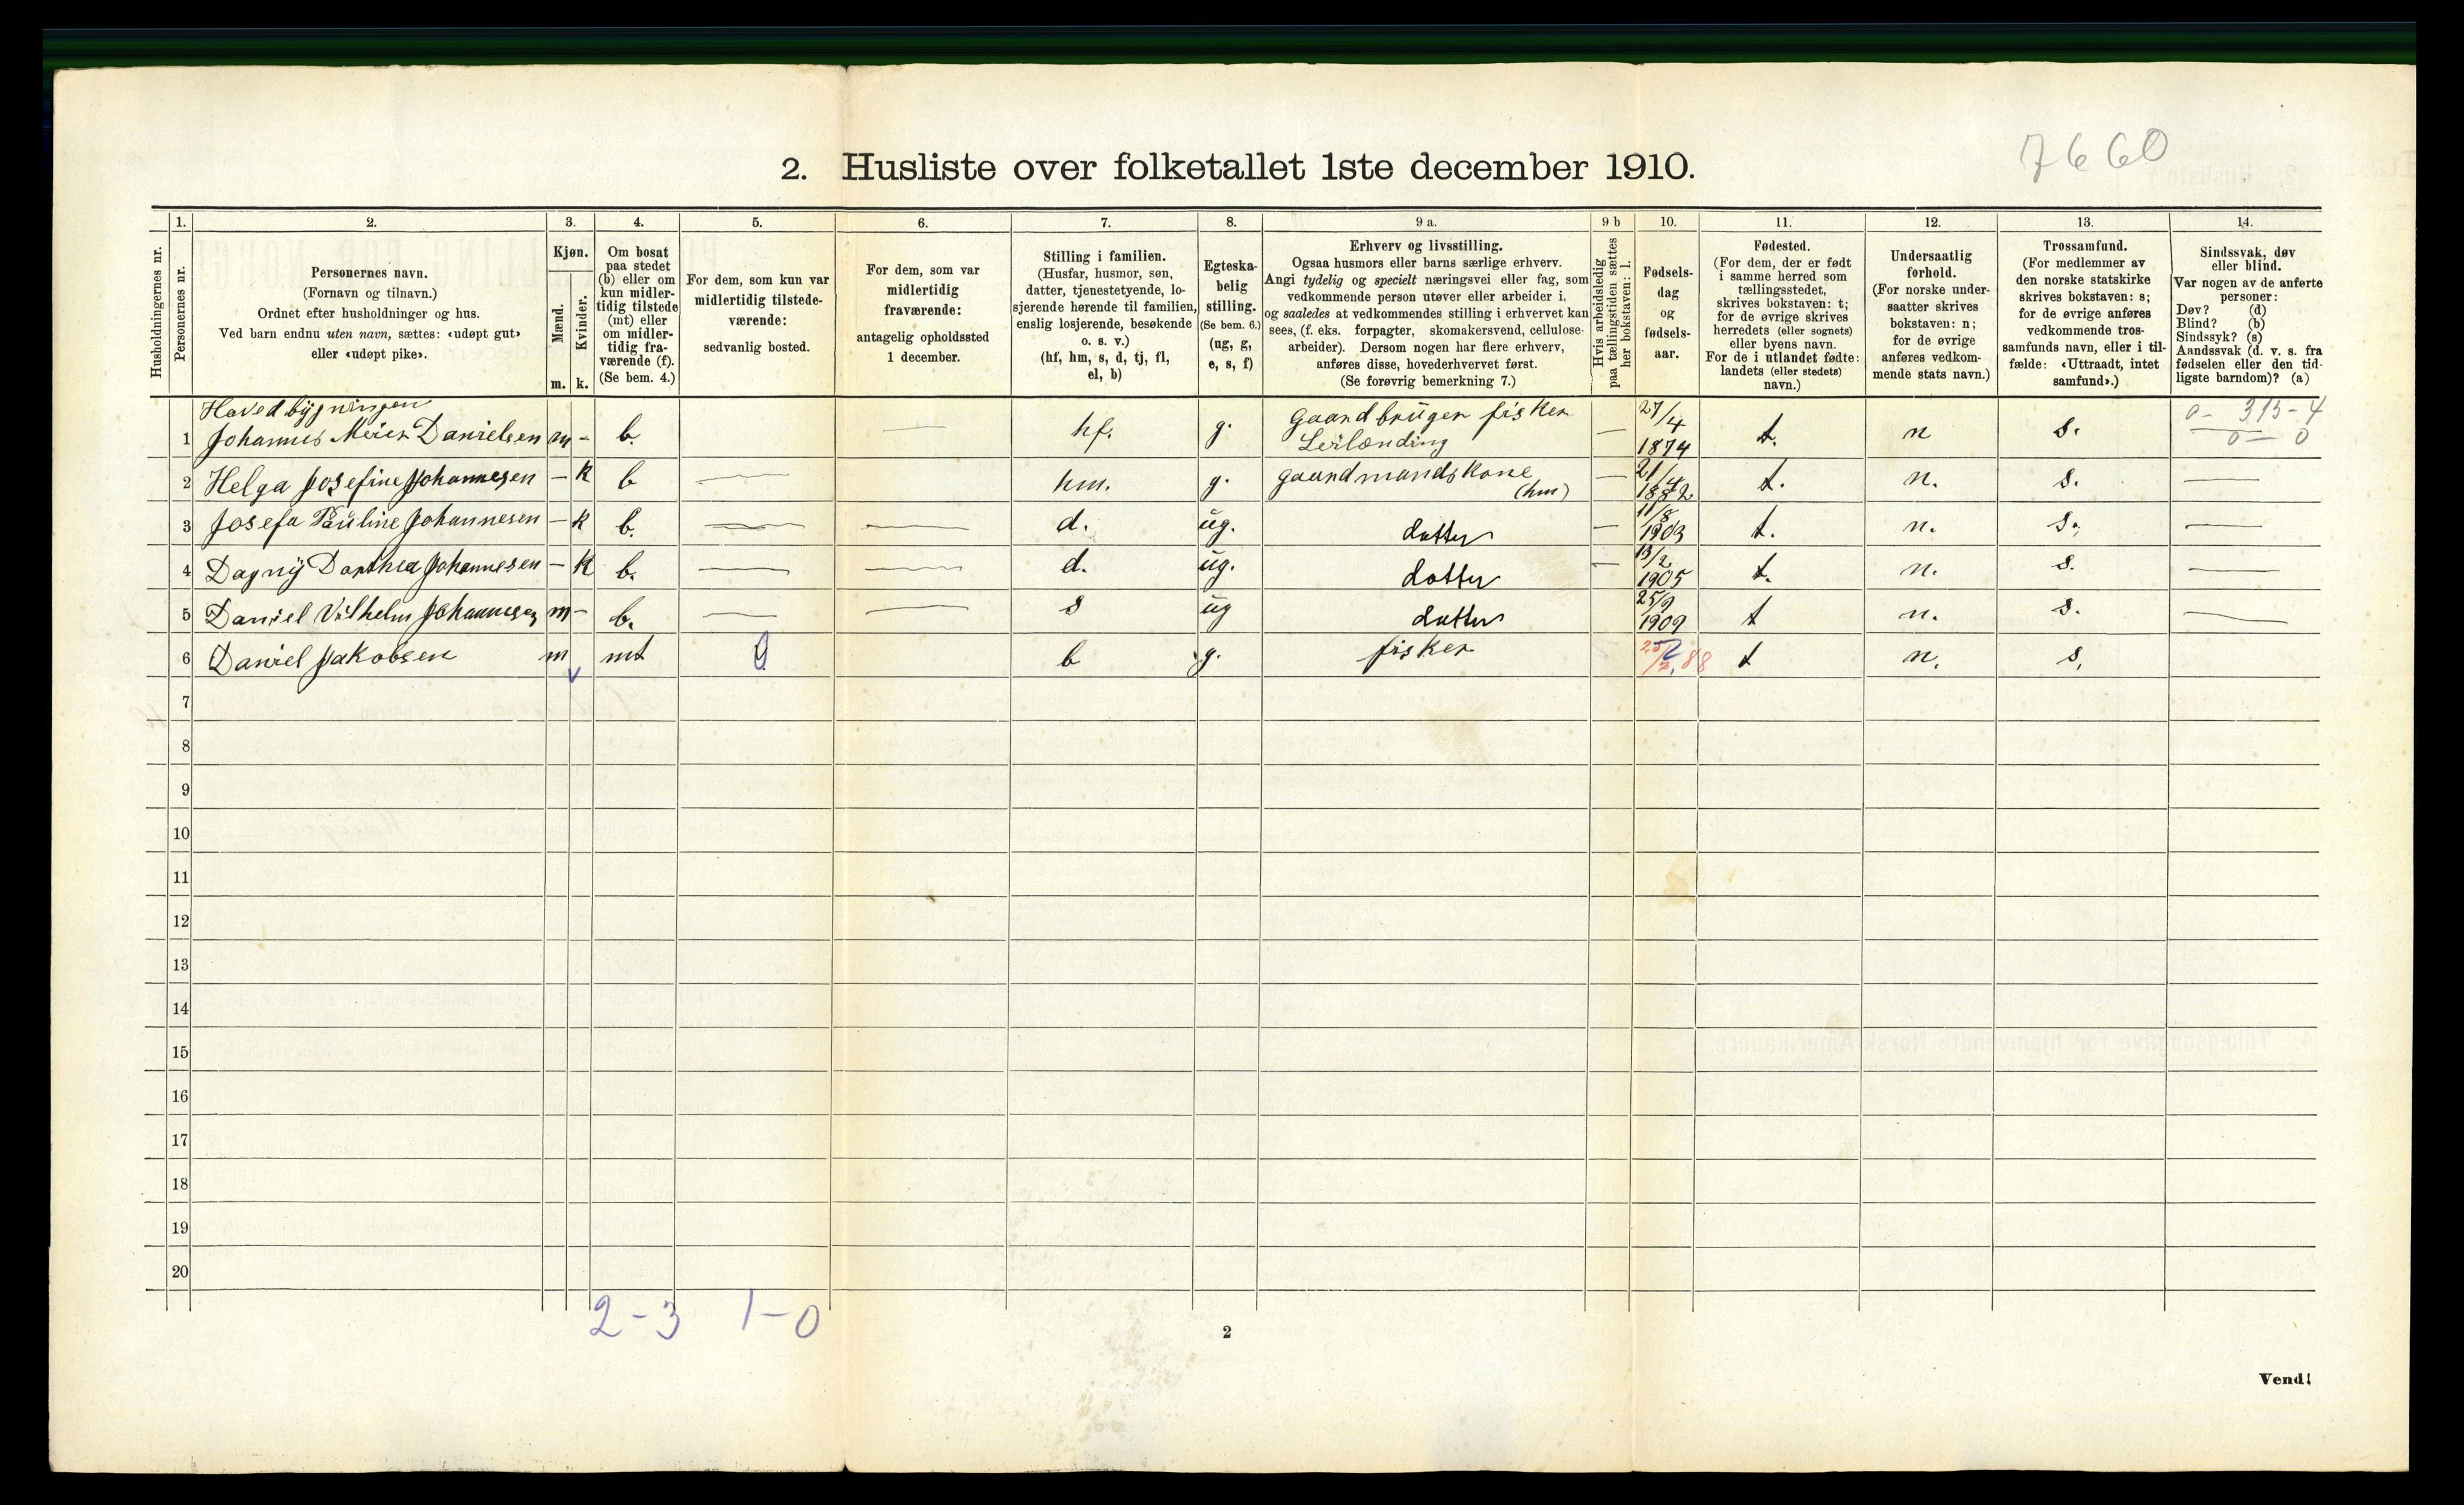 7660
2. Husliste over folketallet 1ste december 1910.
Husholdningernes nr.
1. Personernes nr.
2.
Personernes navn.
(Fornavn og tilnavn.)
Ordnet efter husholdninger og hus.
Ved barn endnu uten navn, sættes: «udøpt gut»
eller «udøpt pike».
3.
Kjøn.
Mænd.
Kvinder.
m. k.
4.
Om bosat
paa stedet
(b) eller om
kun midler-
tidig tilstede
(mt) eller
om midler-
tidig fra-
værende (f).
(Se bem. 4.)
5.
For dem, som kun var
midlertidig tilstede-
værende:
sedvanlig bosted.
6.
For dem, som var
midlertidig
fraværende:
antagelig opholdssted
1 december.
7.
Stilling i familien.
(Husfar, husmor, søn,
datter, tjenestetyende, lo-
sjerende hørende til familien,
enslig losjerende, besøkende
o. s. v.)
(hf, hm, s, d, tj, fl,
el, b)
8.
Egteska-
belig
stilling.
(Se bem. 6.)
(ug, g,
e, s, f)
9 a.
Erhverv og livsstilling.
Ogsaa husmors eller barns særlige erhverv.
Angi tydelig og specielt næringsvei eller fag, som
vedkommende person utøver eller arbeider i,
og saaledes at vedkommendes stilling i erhvervet kan
sees, (f. eks. forpagter, skomakersvend, cellulose-
arbeider). Dersom nogen har flere erhverv,
anføres disse, hovederhvervet først.
(Se forøvrig bemerkning 7.)
9 b
Hvis arbeidsledig
paa tællingstiden sættes
her bokstaven: l.
10.
Fødsels-
dag
og
fødsels-
aar.
11.
Fødested.
(For dem, der er født
i samme herred som
tællingsstedet,
skrives bokstaven: t;
for de øvrige skrives
herredets (eller sognets)
eller byens navn.
For de i utlandet fødte:
landets (eller stedets)
navn.)
12.
Undersaatlig
forhold.
(For norske under-
saatter skrives
bokstaven: n;
for de øvrige
anføres vedkom-
mende stats navn.)
13.
Trossamfund.
(For medlemmer av
den norske statskirke
skrives bokstaven: s;
for de øvrige anføres
vedkommende tros-
samfunds navn, eller i til-
fælde: «Uttraadt, intet
samfund».)
14.
Sindssvak, døv
eller blind.
Var nogen av de anførte
personer:
Døv? (d)
Blind? (b)
Sindssyk? (s)
Aandssvak (d. v. s. fra
fødselen eller den tid-
ligste barndom)? (a)
Hovedbygningen
1 Johannes Meier Danielsen m - b. — hf. g. Gaardbruger fisker Leilænding — 27/4 1874 t. n s. 0 - 315 - 4
0 — 0
2 Helga Josefine Johannesen — k b — hm. g. gaardmandskone (hm) — 21/4 1882 t. n. s. —
3 Josefa Pauline Johannesen — k b. — — d. ug. datter — 11/8 1903 t. n. s. —
4 Dagny Dorthea Johannesen — k b. — — d. ug. datter — 13/2 1905 t. n. s. —
5 Daniel Vilhelm Johannesen m - b. — — s ug datter 25/9 1909 t n. s. —
6 Daniel Jakobsen m mt b g. fisker 25/2 88 t n. s.
7
8
9
10
11
12
13
14
15
16
17
18
19
20
2 - 3 1 - 0
2
Vend!